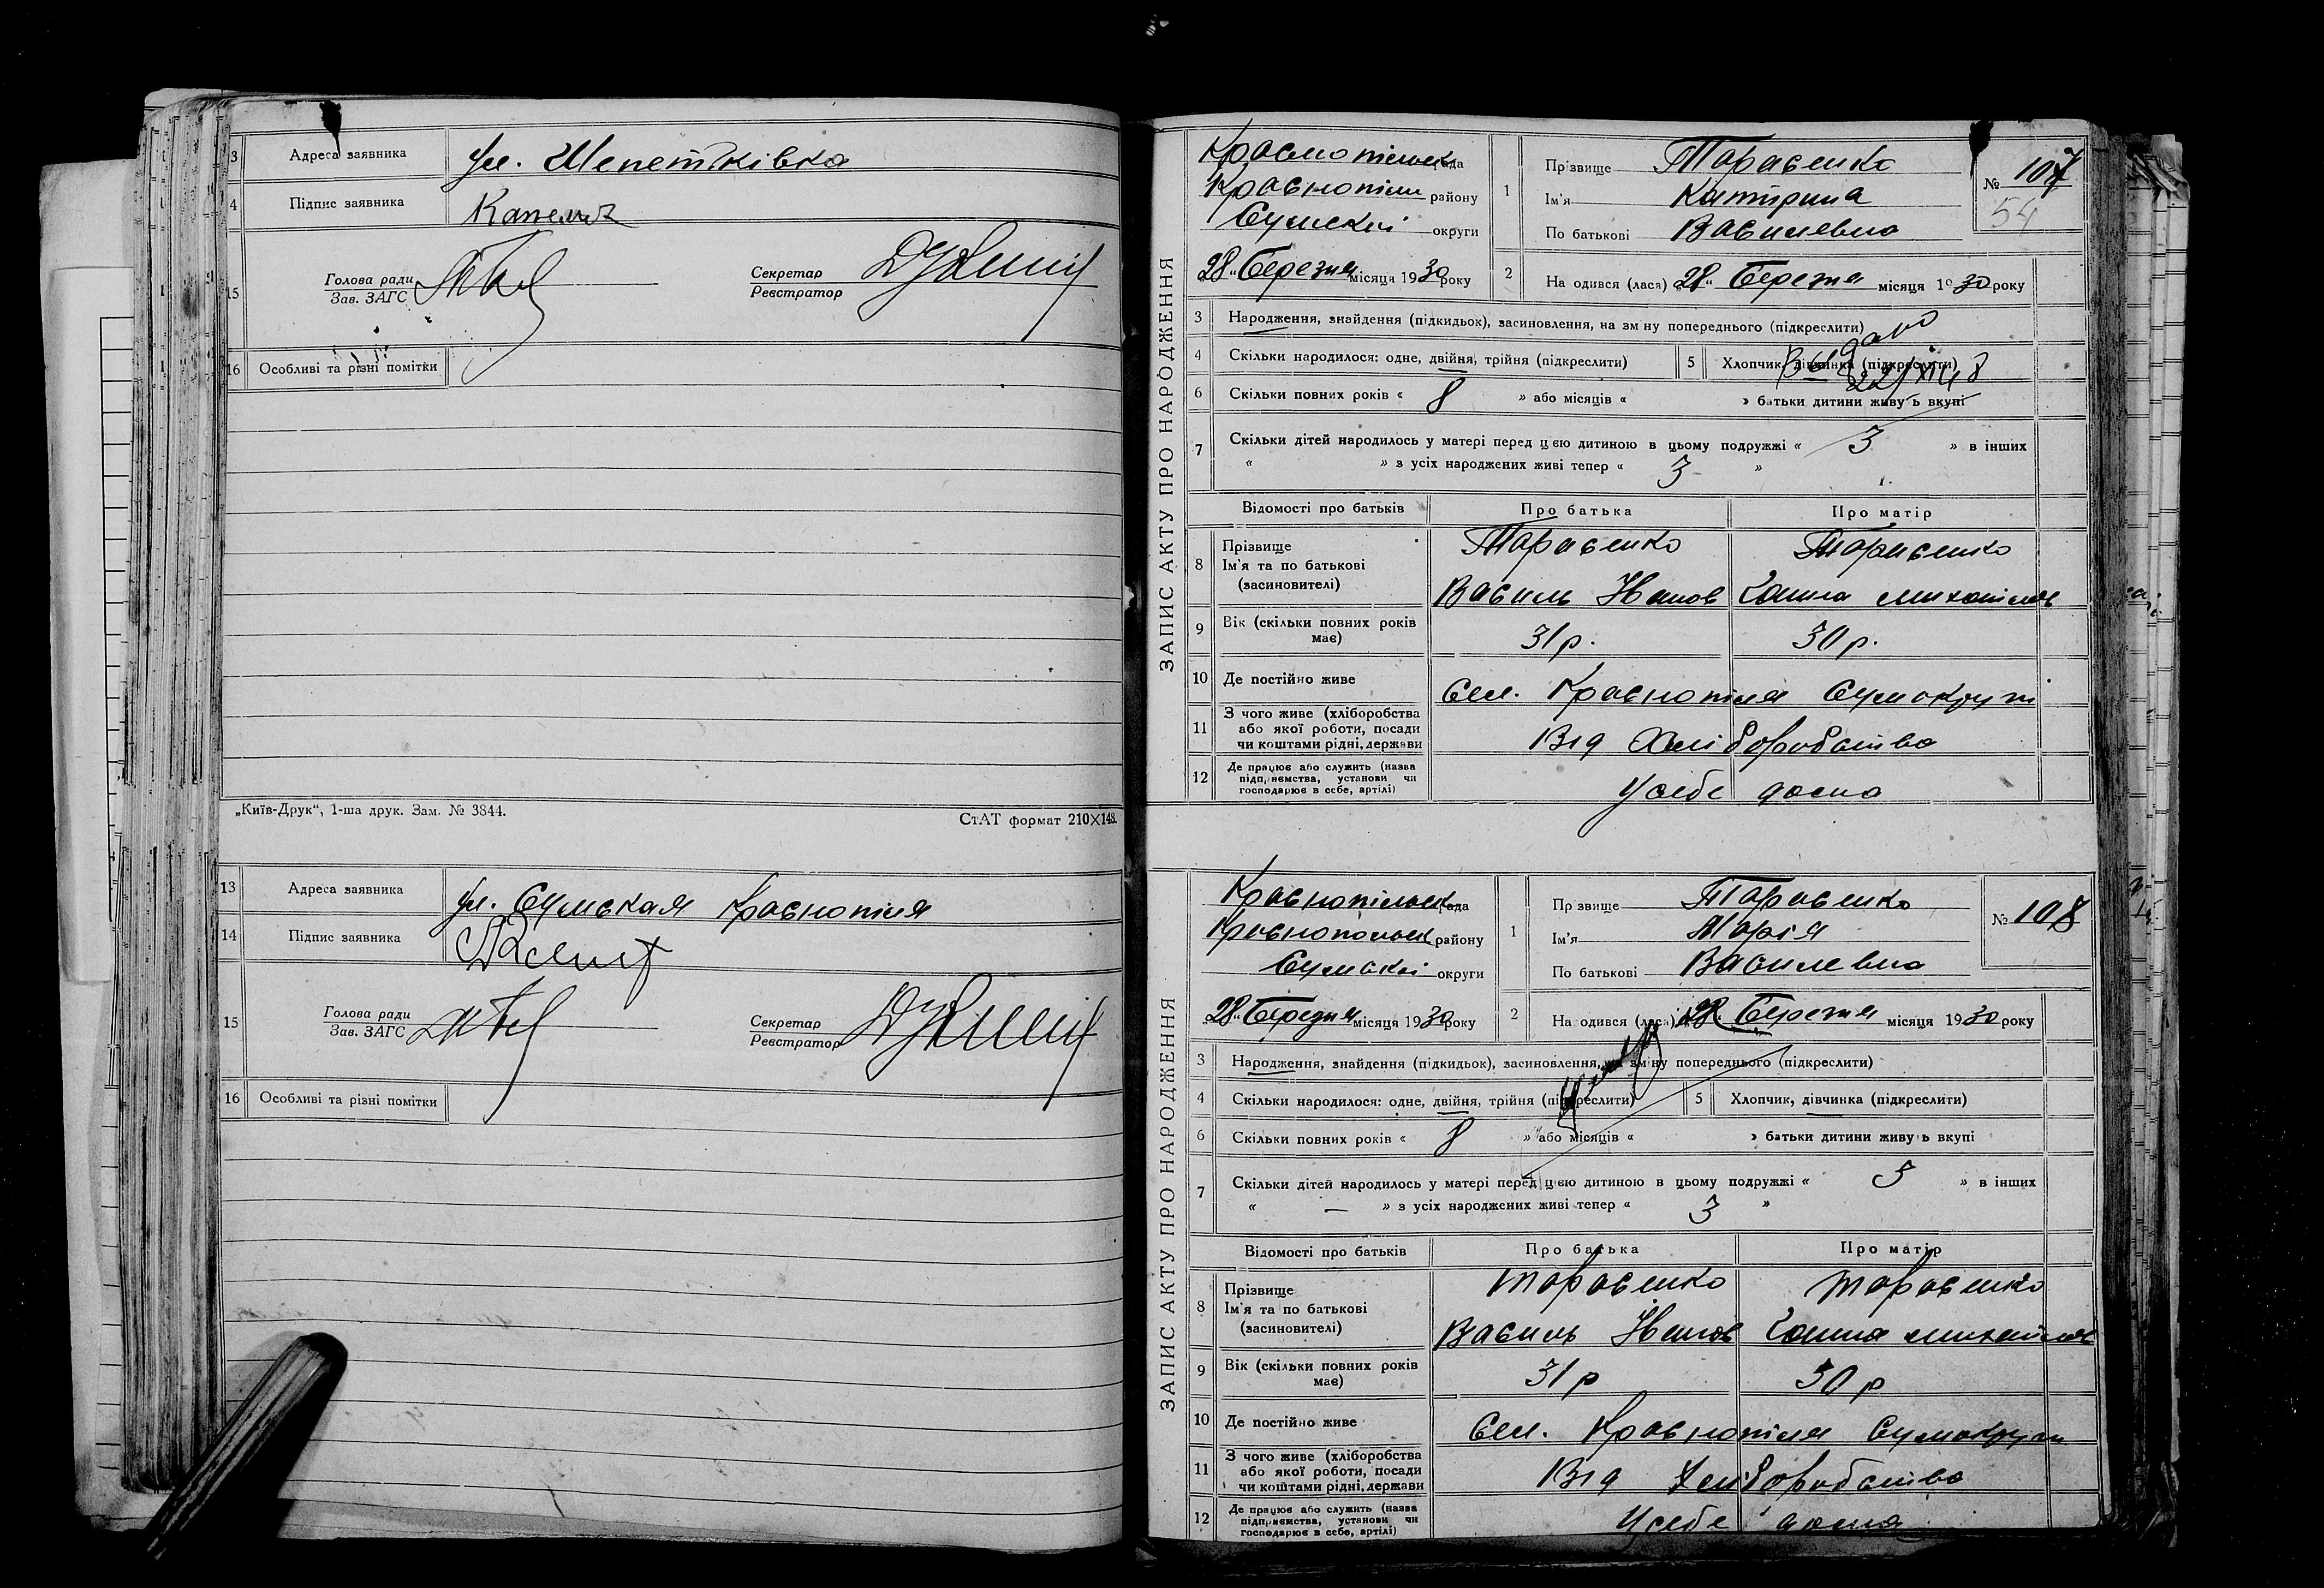 3 Адреса заявника ул. Шепетківка
4 Підпис заявника
15 Голова ради Секретар
Зав. ЗАГС Реєстратор
16 Особливі та різні помітки
„Київ-Друк“, 1-ша друк. Зам. № 3844. СтАТ формат 210X148.
13 Адреса заявника ул. Сумская Краснопіля
14 Підпис заявника
15 Голова ради Секретар
Зав. ЗАГС Реєстратор
16 Особливі та різні помітки
ЗАПИС АКТУ ПРО НАРОДЖЕННЯ
Краснопільск рада
Краснопіль району
Сумскої округи
„28“ Березня місяця 1930 року
1 Прізвище Тарасенко
Ім'я Катірина
По батькові Василевна
№ 107
54
2 На одився (лася) „28“ Березня місяця 1930 року
3 Народження, знайдення (підкидьок), засиновлення, на зм ну попереднього (підкреслити)
4 Скільки народилося: одне, двійня, трійня (підкреслити) 5 Хлопчик, дівчинка (підкреслити)
6 Скільки повних років « 8 » або місяців « » батьки дитини живу ь вкупі
7 Скільки дітей народилось у матері перед цією дитиною в цьому подружжі « 3 » в інших
« » з усіх народжених живі тепер « 3 »
Відомості про батьків Про батька Про матір
8 Прізвище Тарасенко Тарасенко
Ім'я та по батькові
(засиновителі) Василь Іванов Ганна Михайлов
9 Вік (скільки повних років має) 31 р. 30 р.
10 Де постійно живе Сел. Краснопіля Сумокруги
11 З чого живе (хліборобства
або якої роботи, посади
чи коштами рідні, держави Від Хліборобства
12 Де працює або служить (назва
підприємства, установи чи
господарює в себе, артілі) У себе дома
ЗАПИС АКТУ ПРО НАРОДЖЕННЯ
Краснопільск рада
Краснопольск району
Сумскої округи
„28“ Березня місяця 1930 року
1 Пр звище Тарасенко
Ім'я Марія
По батькові Василевна
№ 108
2 На одився (лася) „28“ Березня місяця 1930 року
3 Народження, знайдення (підкидьок), засиновлення, на зміну попереднього (підкреслити)
4 Скільки народилося: одне, двійня, трійня (підкреслити) 5 Хлопчик, дівчинка (підкреслити)
6 Скільки повних років « 8 » або місяців « » батьки дитини живу ь вкупі
7 Скільки дітей народилось у матері перед цією дитиною в цьому подружжі « 3 » в інших
« — » з усіх народжених живі тепер « 3 »
Відомості про батьків Про батька Про матір
8 Прізвище Тарасенко Тарасенко
Ім'я та по батькові
(засиновителі) Василь Іванов Ганна Михайлов
9 Вік (скільки повних років має) 31 р 30 р
10 Де постійно живе Сел. Краснопіля Сумокруги
11 З чого живе (хліборобства
або якої роботи, посади
чи коштами рідні, держави Від Хліборобства
12 Де працює або служить (назва
підприємства, установи чи
господарює в себе, артілі) У себе дома